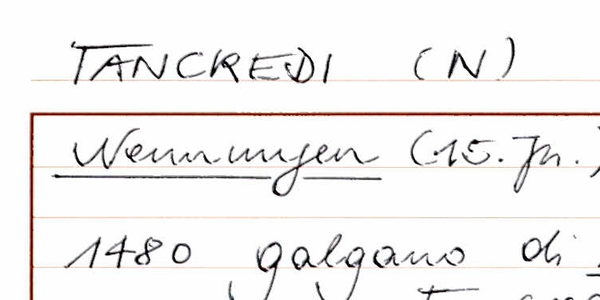 TANCREDI (N)
Nennungen (15. Jh.)
1480 galgano di